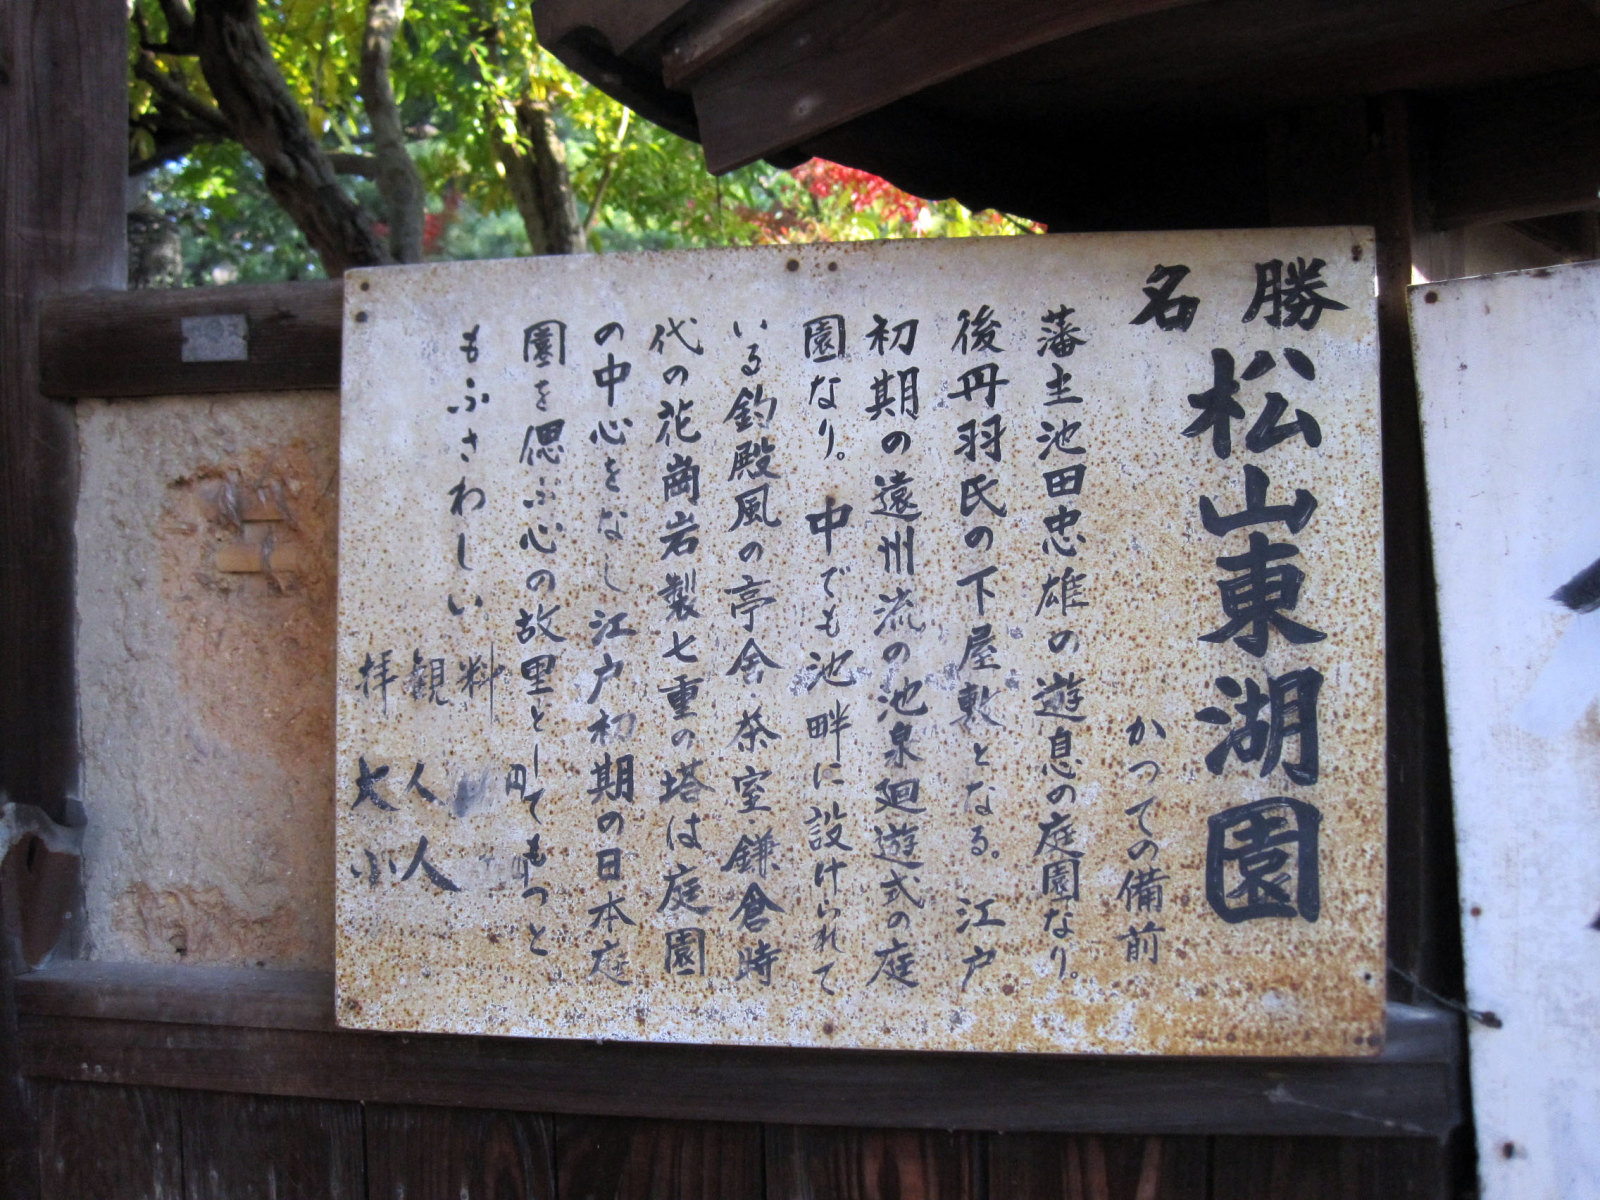 名勝
松山東湖園
かつての備前
藩主池田忠雄の遊息の庭園なり。
後丹羽氏の下屋敷となる。江戸
初期の遠州流の池泉廻遊式の庭
園なり。中でも池畔に設けられて
いる釣殿風の亭舎・茶室鎌倉時
代の花崗岩製七重の塔は庭園
の中心をなし江戸初期の日本庭
園を偲ぶ心の故里としてもっと
もふさわしい
拝観料
大人 円
小人